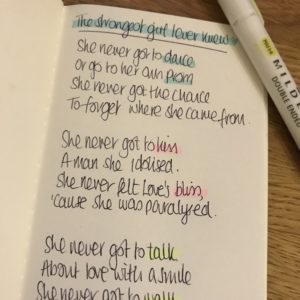 The strongest girl I ever knew
She never got to dance
or go to her own prom
She never got the chance
To forget where she came from.
She never got to kiss
A man she idolised.
She never felt Love's bliss,
'cause she was paralysed.
She never got to talk
About love with a smile
She never got to walk
MILDL
DOUBLE ENDED